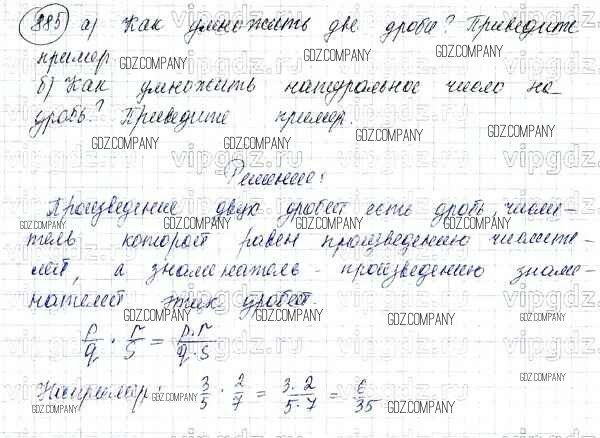 885 а) Как умножить две дроби? Приведите
пример
б) Как умножить натуральное число на
дробь? Приведите пример.
Решение:
Произведение двух дробей есть дробь, числи-
тель которой равен произведению числите-
лей, а знаменатель - произведению знаме-
нателей этих дробей.
p/q · r/s = p·r/q·s
Например: 3/5 · 2/7 = 3·2/5·7 = 6/35